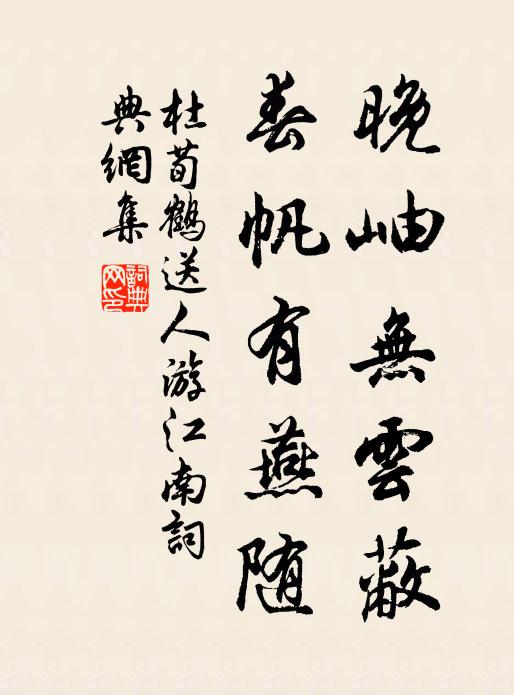 晚岫無雲蔽
春帆有燕随
杜荀鶴送人游江南詞
典網集
詞典网印